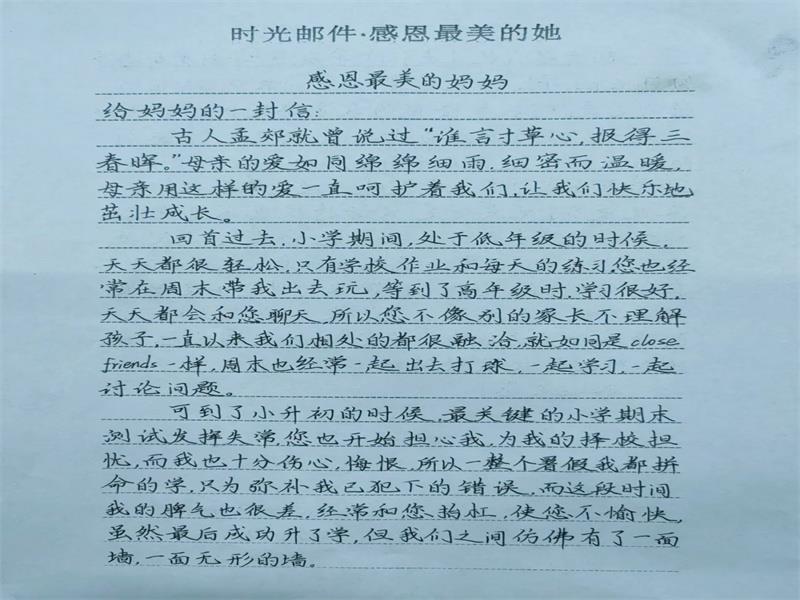 时光邮件·感恩最美的她
感恩最美的妈妈
给妈妈的一封信:
古人孟郊就曾说过“谁言寸草心,报得三
春晖。”母亲的爱如同绵绵细雨,细密而温暖,
母亲用这样的爱一直呵护着我们,让我们快乐地
茁壮成长。
回首过去,小学期间,处于低年级的时候,
天天都很轻松,只有学校作业和每天的练习,您也经
常在周末带我出去玩,等到了高年级时,学习很好,
天天都会和您聊天,所以您不像别的家长不理解
孩子,一直以来我们相处的都很融洽,就如同是close
friends一样,周末也经常一起出去打球,一起学习,一起
讨论问题。
可到了小升初的时候,最关键的小学期末
测试发挥失常,您也开始担心我,为我的择校担
忧,而我也十分伤心,悔恨,所以一整个暑假我都拼
命的学,只为弥补我已犯下的错误,而这段时间
我的脾气也很差,经常和您抬杠,使您不愉快,
虽然最后成功升了学,但我们之间仿佛有了一面
墙,一面无形的墙。